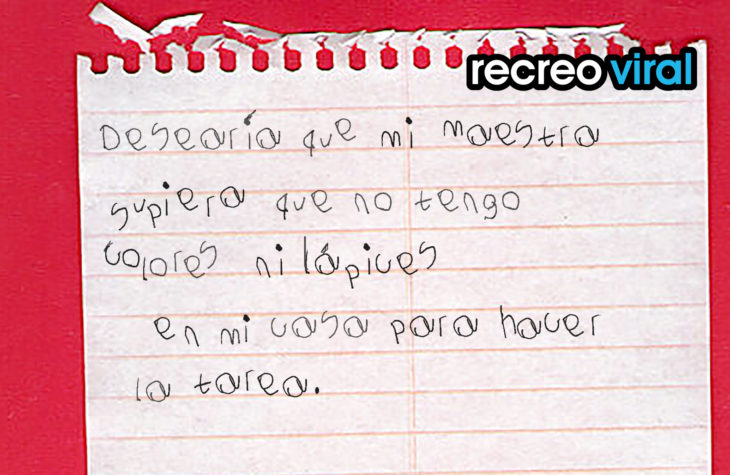 recreoviral
Desearía que mi maestra
supiera que no tengo
colores ni lápices
en mi casa para hacer
la tarea.